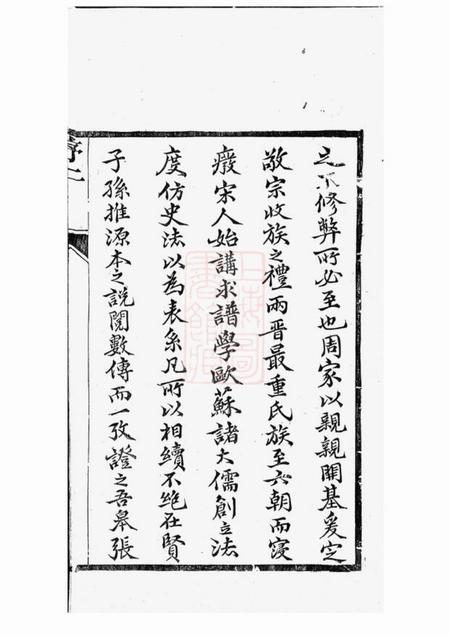 之不修弊所必至也周家以親親開基爰定
敬宗收族之禮兩晉最重氏族至六朝而寖
廢宋人始講求譜學歐蘇諸大儒創立法
度仿史法以為表系凡所以相續不絶在賢
子孫推源本之說閱數傳而一攷證之吾皋張
序二